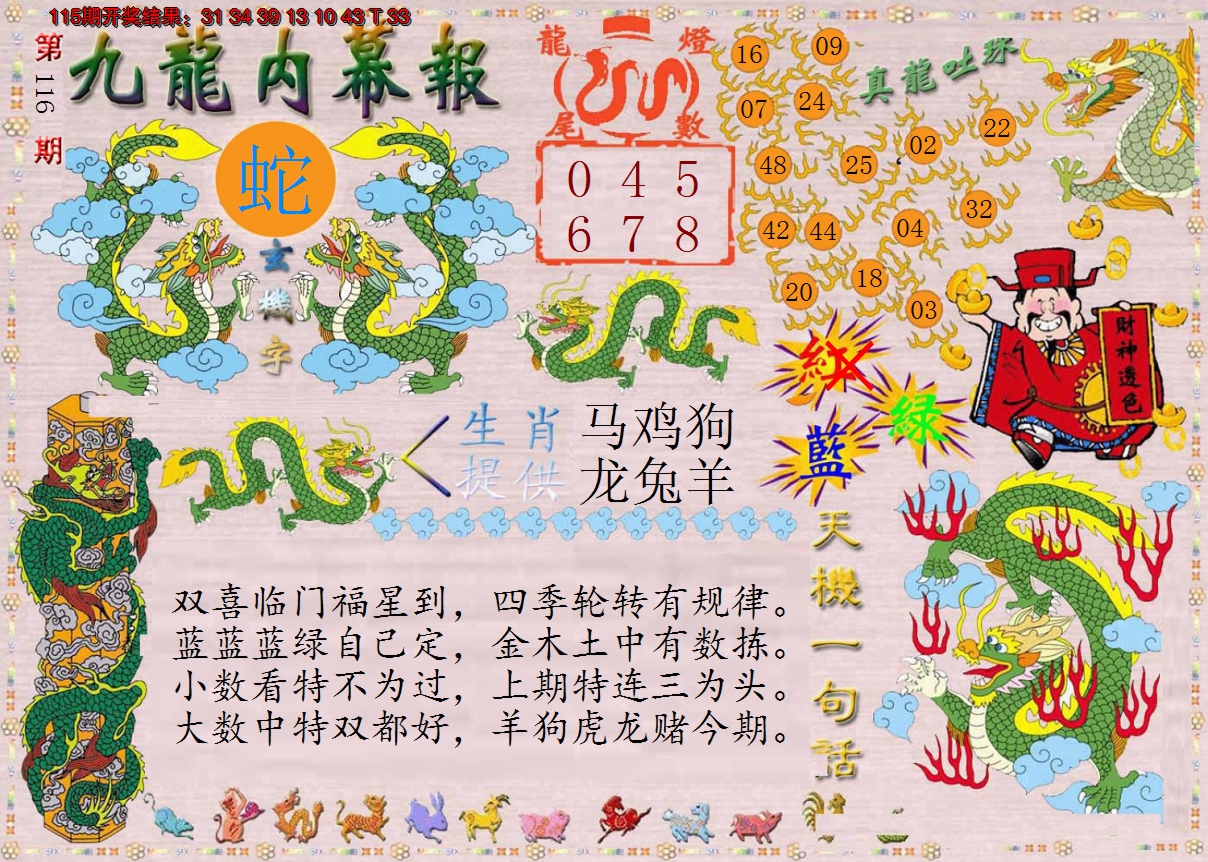 115期开奖结果：31 34 39 13 10 43 T 33
第116期
九龍内幕報
蛇
玄機字
龍燈尾數
0 4 5
6 7 8
真龍吐珠
16 09
07 24
48 25 02 22
42 44 04 32
20 18 03
紅
绿
藍
財神透色
生肖 马鸡狗
提供 龙兔羊
天機一句話
双喜临门福星到，四季轮转有规律。
蓝蓝蓝绿自己定，金木土中有数拣。
小数看特不为过，上期特连三为头。
大数中特双都好，羊狗虎龙赌今期。